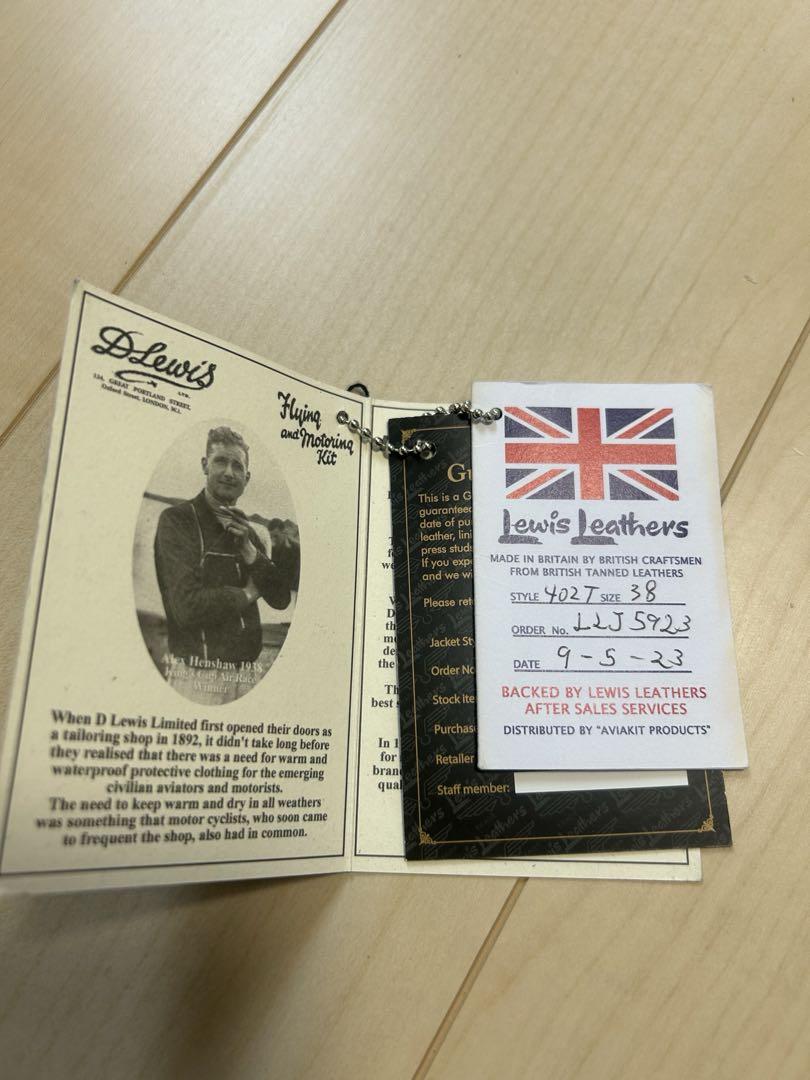 D Lewis
LTD.
124, GREAT PORTLAND STREET,
Oxford Street, LONDON, W.1.
Flying
and Motoring
Kit
Alex Henshaw 1938
King's Cup Air Race
Winner
When D Lewis Limited first opened their doors as
a tailoring shop in 1892, it didn't take long before
they realised that there was a need for warm and
waterproof protective clothing for the emerging
civilian aviators and motorists.
The need to keep warm and dry in all weathers
was something that motor cyclists, who soon came
to frequent the shop, also had in common.
This is a G
guarantee
date of pu
leather, lini
press stud
If you exp
and we wi
Please ret
Jacket St
Order No
Stock Ite
Purchas
Retailer
Staff member:
Lewis Leathers
MADE IN BRITAIN BY BRITISH CRAFTSMEN
FROM BRITISH TANNED LEATHERS
STYLE 402T SIZE 38
ORDER No. LLJ5923
DATE 9-5-23
BACKED BY LEWIS LEATHERS
AFTER SALES SERVICES
DISTRIBUTED BY "AVIAKIT PRODUCTS"